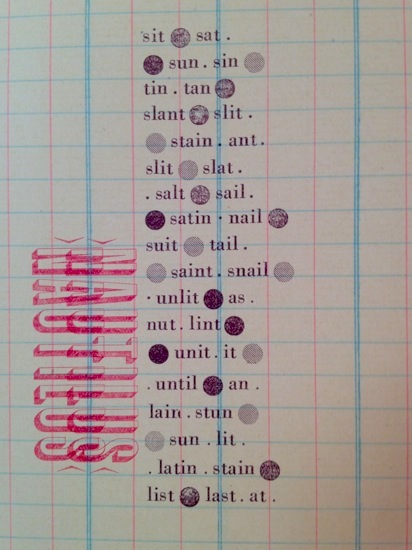 sit sat .
sun . sin
tin . tan
slant slit .
stain . ant .
slit slat .
. salt sail .
satin · nail
suit tail .
saint . snail
· unlit as .
nut . lint
unit . it
. until an .
lain . stun
sun . lit .
. latin . stain
list last . at .
NAUTILUS